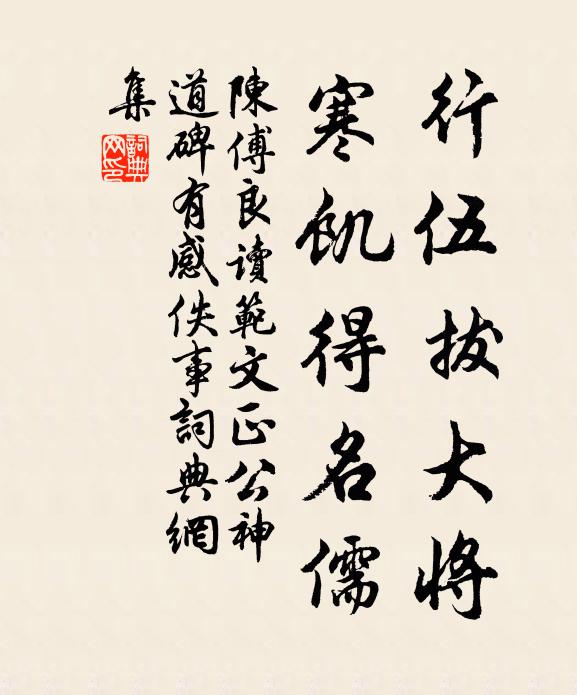 行伍拔大将
寒飢得名儒
陳傅良讀範文正公神
道碑有感佚事詞典網
集
詞典
网印